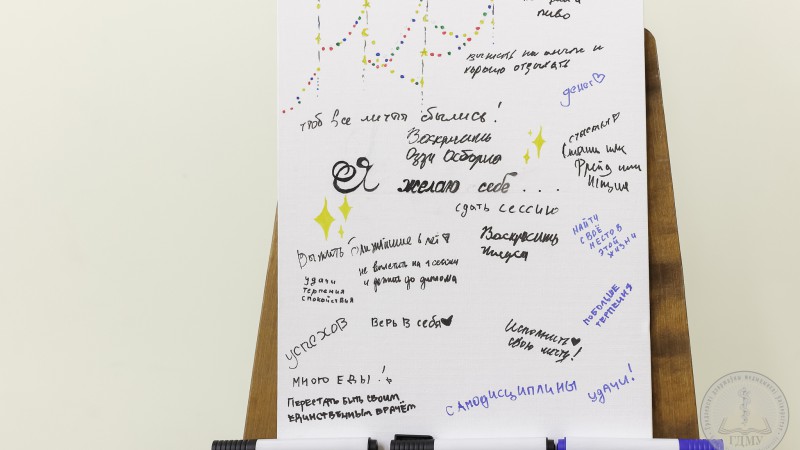 пиво
выжить на анчоп и
хорошо отдыхать
денег
чтоб все мечты сбылись!
Воскрешить
Оззи Осборна
счастья
Фрейд или
Ницше
Я желаю себе...
сдать сессию
Воскресить
Иисуса
найти
своё
место в
этой
жизни
Выжить ближайшие 6 лет
не вылететь на 1 сессии
и дожить до диплома
удачи
терпения
спокойствия
побольше
терпения
успехов
верь в себя
Исполнить
свою мечту!
много еды!
перестать быть своим
единственным врачём
самодисциплины
удачи!
ГДМУ